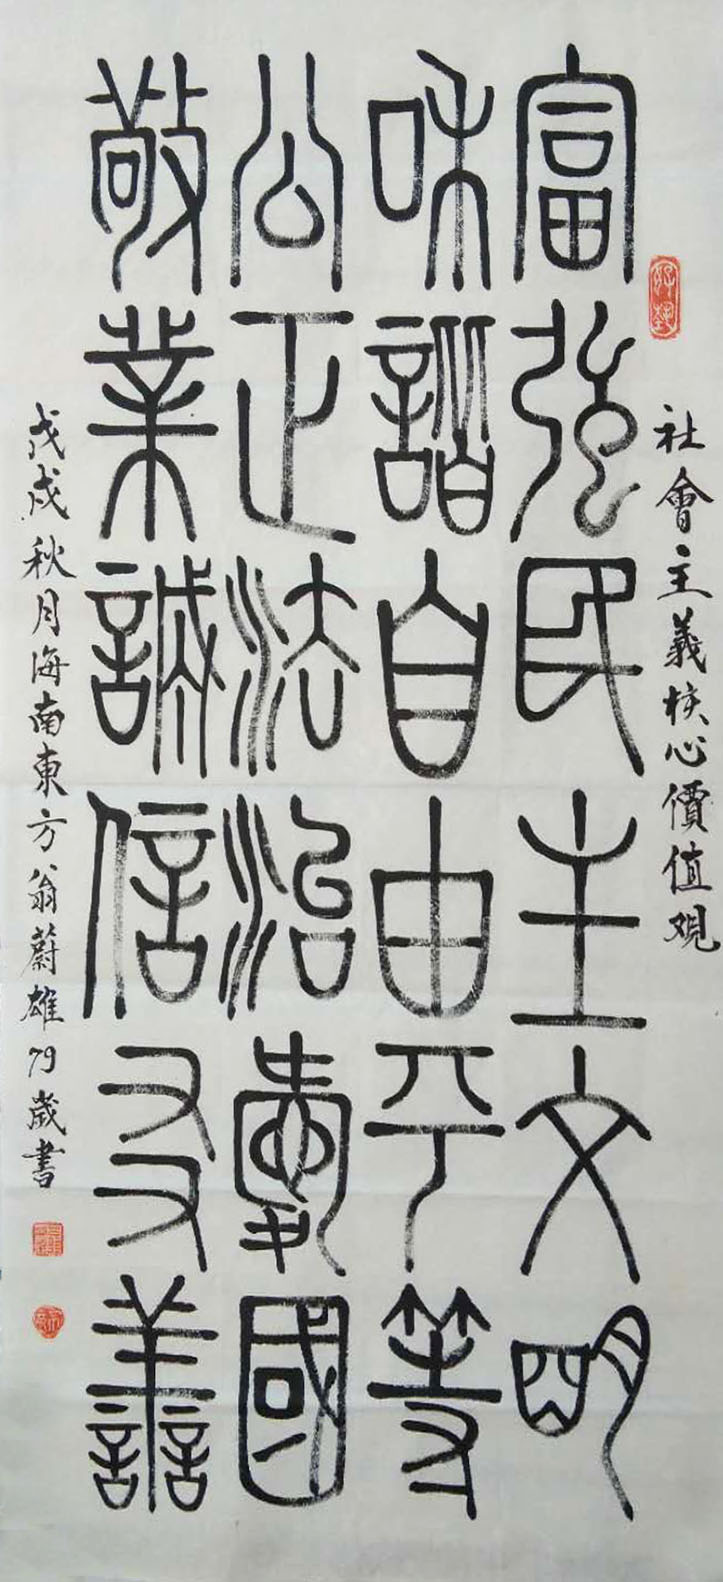 社會主義核心價值观
富強民主文明
和諧自由平等
公正法治愛國
敬業誠信友善
戊戌秋月海南東方翁蔚雄79歲書